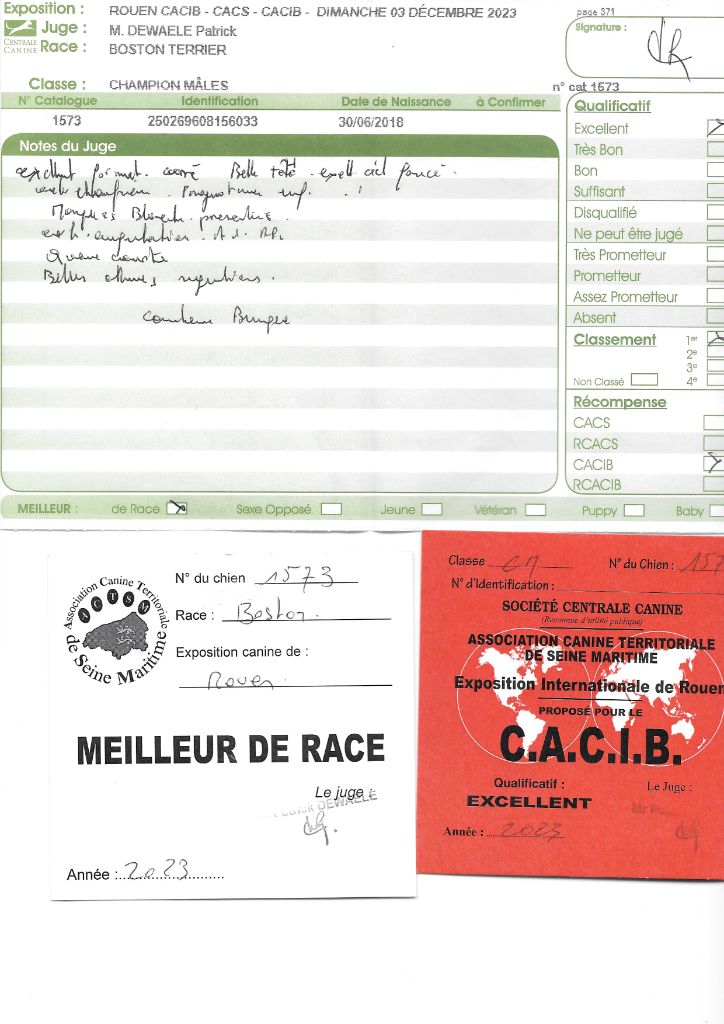 Exposition : ROUEN CACIB - CACS - CACIB - DIMANCHE 03 DÉCEMBRE 2023
page 371
CENTRALE CANINE
Juge : M. DEWAELE Patrick
Race : BOSTON TERRIER
Signature :
Classe : CHAMPION MÂLES
n° cat 1573
N° Catalogue Identification Date de Naissance à Confirmer
1573 250269608156033 30/06/2018
Notes du Juge
excellent format carré Belle tête excell œil foncé.
chanfrein
Marques Blanches présentes.
angulation
Queue courte
Belles allures régulières.
Couleur Bringée
Qualificatif
Excellent
Très Bon
Bon
Suffisant
Disqualifié
Ne peut être jugé
Très Prometteur
Prometteur
Assez Prometteur
Absent
Classement 1er
2e
3e
Non Classé 4e
Récompense
CACS
RCACS
CACIB
RCACIB
MEILLEUR : de Race Sexe Opposé Jeune Vétéran Puppy Baby
Association Canine Territoriale
ACTSM
de Seine Maritime
N° du chien 1573
Race : Boston
Exposition canine de :
Rouen
MEILLEUR DE RACE
Le juge :
Patrick DEWAELE
Année : 2023
Classe CH N° du Chien : 157
N° d'Identification :
SOCIÉTÉ CENTRALE CANINE
(Reconnue d'utilité publique)
ASSOCIATION CANINE TERRITORIALE
DE SEINE MARITIME
Exposition Internationale de Rouen
PROPOSÉ POUR LE
C.A.C.I.B.
Qualificatif :
EXCELLENT
Le Juge :
Année : 2023